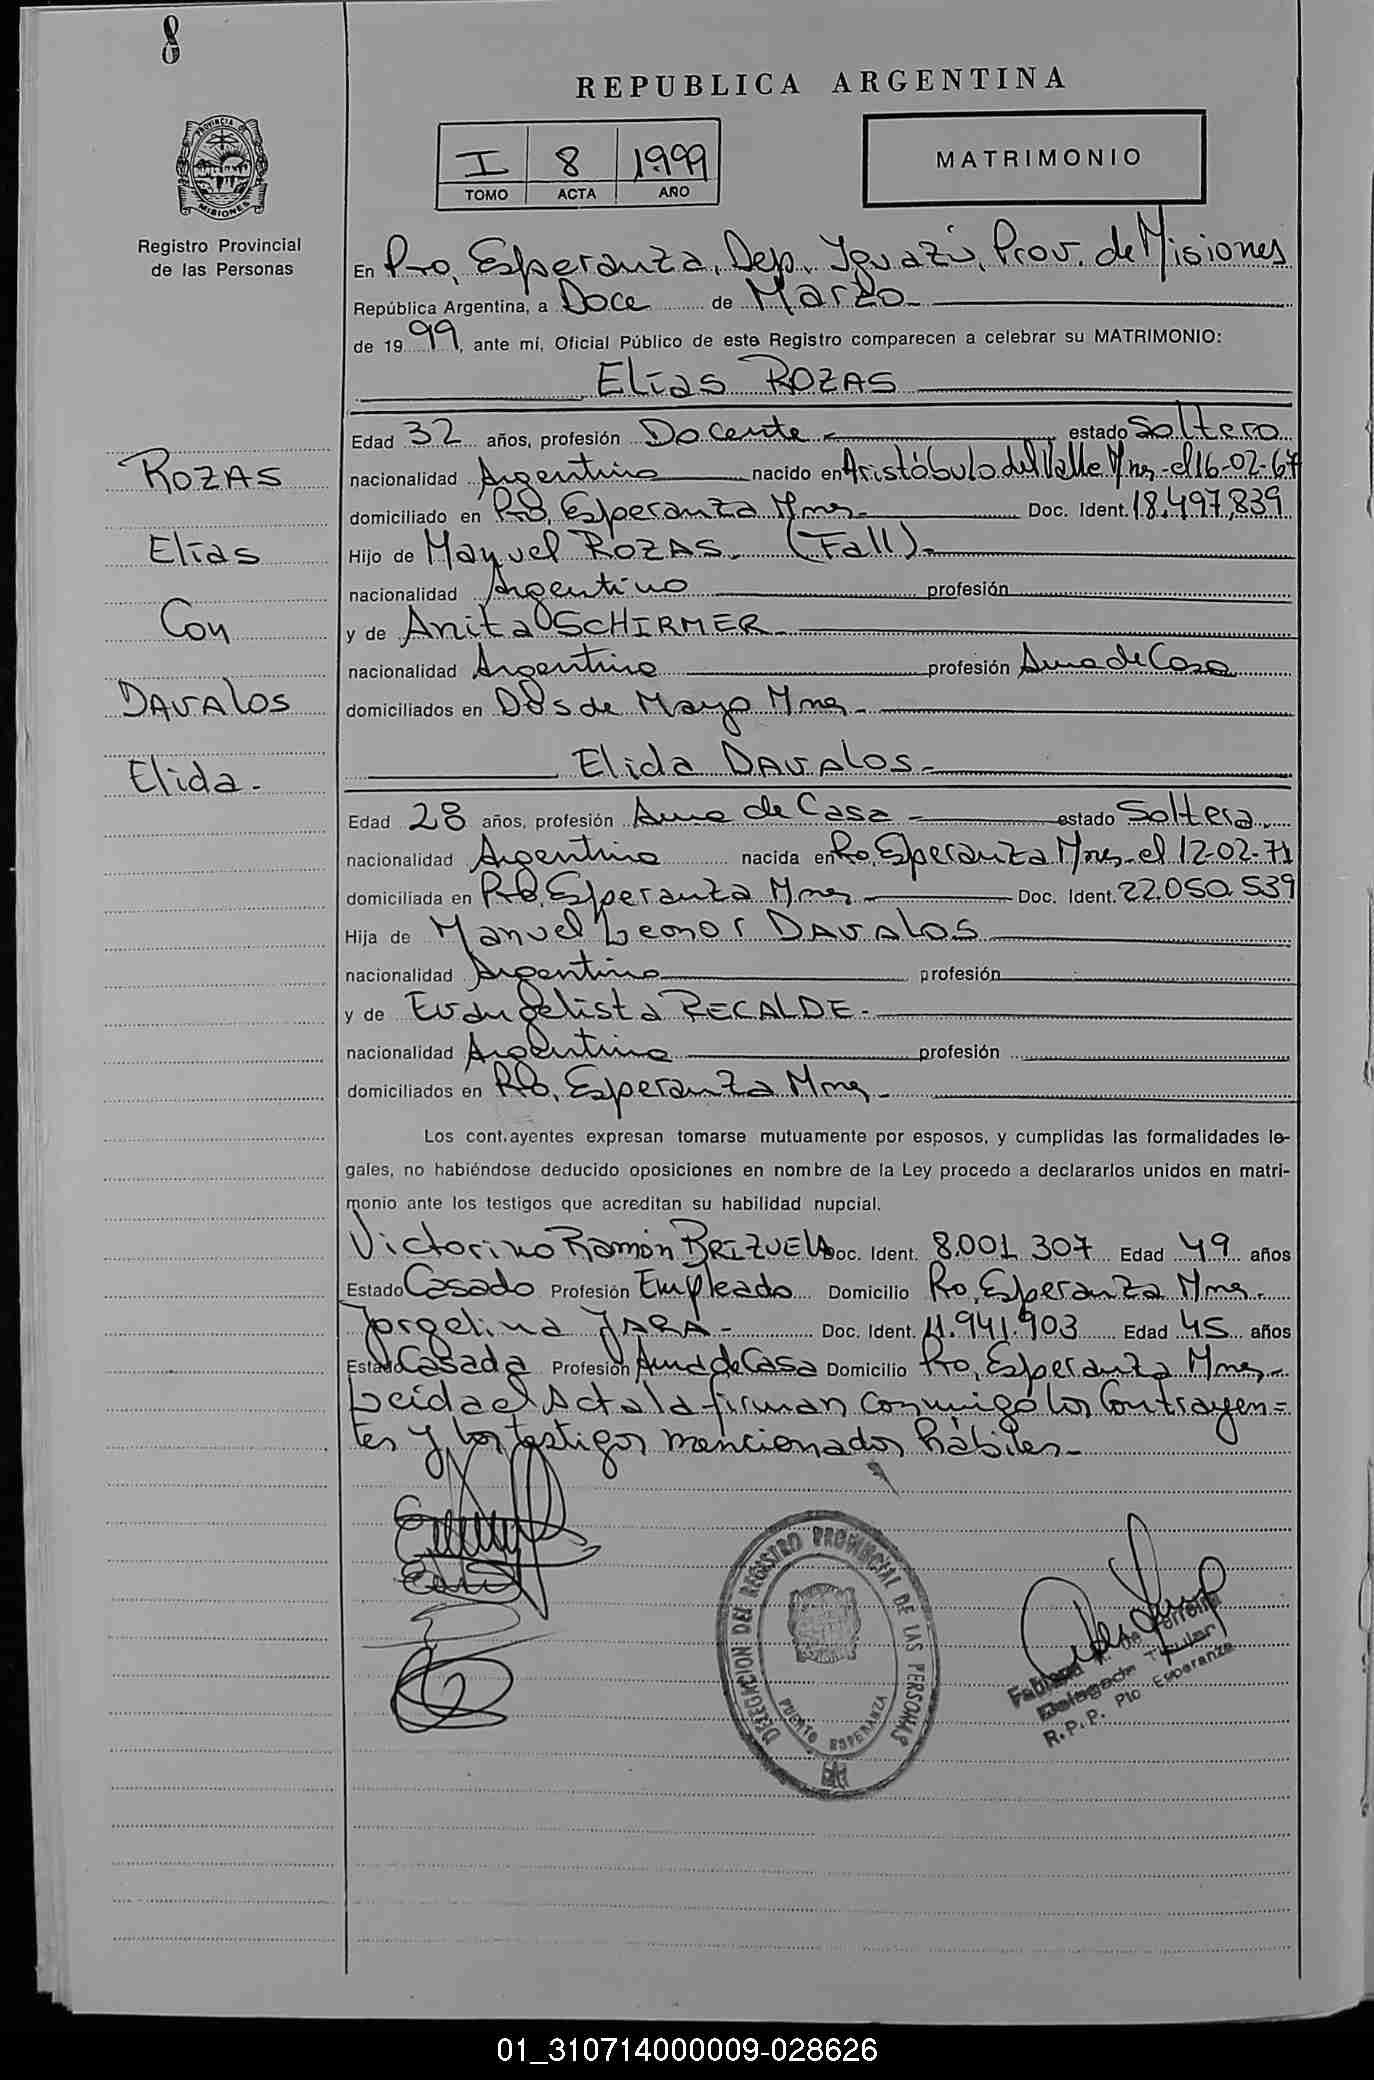 8
REPUBLICA ARGENTINA
I 8 1999
TOMO ACTA AÑO
MATRIMONIO
PROVINCIA DE
MISIONES
Registro Provincial
de las Personas
En Pto. Esperanza, Dep. Iguazú, Prov. de Misiones
República Argentina, a Doce de Marzo
de 1999, ante mí, Oficial Público de este Registro comparecen a celebrar su MATRIMONIO:
Elías ROZAS
Edad 32 años, profesión Docente - estado Soltero
nacionalidad Argentino nacido en Aristóbulo del Valle Mnes - el 16-02-67
domiciliado en Pto. Esperanza Mnes - Doc. Ident. 18.497,839
Hijo de Manuel ROZAS - (Fall) -
nacionalidad Argentino profesión
y de Anita SCHIRMER -
nacionalidad Argentina profesión Ama de Casa
domiciliados en Dos de Mayo Mnes -
Elida DAVALOS -
Edad 28 años, profesión Ama de Casa - estado Soltera
nacionalidad Argentina nacida en Pto. Esperanza Mnes - el 12-02-71
domiciliada en Pto. Esperanza Mnes Doc. Ident. 22.050.539
Hija de Manuel Leonor DAVALOS
nacionalidad Argentino profesión
y de Evangelista RECALDE -
nacionalidad Argentina profesión
domiciliados en Pto. Esperanza Mnes -
Los cont.ayentes expresan tomarse mutuamente por esposos, y cumplidas las formalidades le-
gales, no habiéndose deducido oposiciones en nombre de la Ley procedo a declararlos unidos en matri-
monio ante los testigos que acreditan su habilidad nupcial.
Victorino Ramón BRIZUELA Doc. Ident. 8.001.307 Edad 49 años
Estado Casado Profesión Empleado Domicilio Pto. Esperanza Mnes -
Jorgelina JARA - Doc. Ident. 11.941.903 Edad 45 años
Estado Casada Profesión Ama de Casa Domicilio Pto. Esperanza Mnes -
Leida el Acta la firman conmigo los Contrayen=
tes y los testigos mencionados hábiles -
ROZAS
Elías
Con
DAVALOS
Elida -
DELEGACION DEL REGISTRO PROVINCIAL DE LAS PERSONAS
PUERTO ESPERANZA
de Ferreira
Delegada Titular
R.P.P. Pto Esperanza
01_310714000009-028626